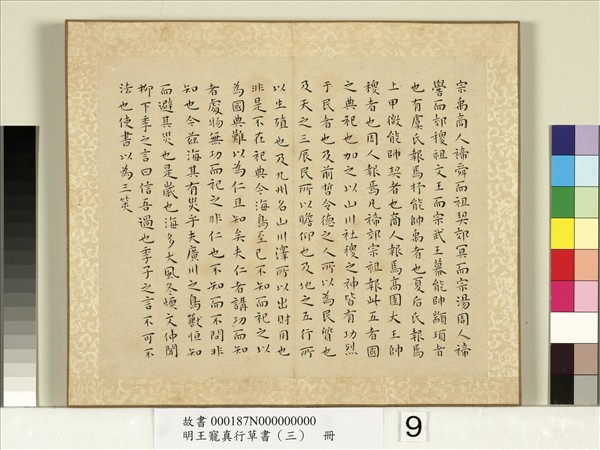 宗禹商人禘舜而祖契郊冥而宗湯周人禘
嚳而郊稷祖文王而宗武王幕能帥顓頊者
也有虞氏報焉杼能帥禹者也夏后氏報焉
上甲微能帥契者也商人報焉高圉大王帥
稷者也周人報焉凡禘郊宗祖報此五者國
之典祀也加之以山川社稷之神皆有功烈
于民者也及前哲令德之人所以為民質也
及天之三辰民所以瞻仰也及地之五行所
以生殖也及九州名山川澤所以出財用也
非是不在祀典今海鳥至己不知而祀之以
為國典難以為仁且知矣夫仁者講功而知
者處物無功而祀之非仁也不知而不問非
知也今茲海其有災乎夫廣川之鳥獸恒知
而避其災也是歲也海多大風冬煗文仲聞
柳下季之言曰信吾過也季子之言不可不
法也使書以為三筴
故書 000187N000000000
明王寵真行草書（三） 冊
9